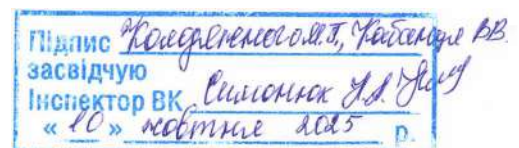 Підпис Колодяжного М.П., Кабанця В.В.
засвідчую
Інспектор ВК Симонюк Н.А.
« 10 » жовтня 2025 р.